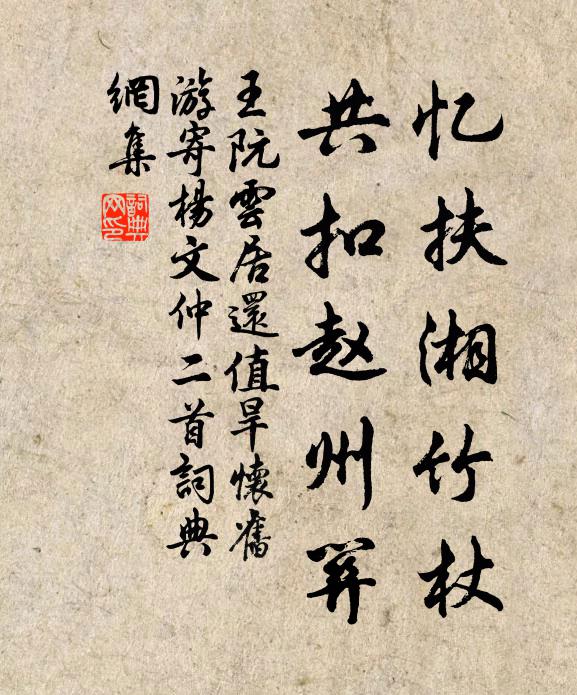 忆扶湘竹杖
共扣赵州关
王阮雲居還值旱懷舊
游寄楊文仲二首詞典
網集
詞典
网印